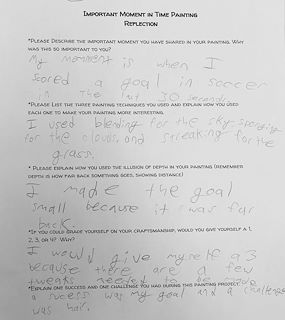 Important Moment in Time Painting
Reflection
*Please Describe the important moment you have shared in your painting. Why
was this so important to you?
My moment is when I
scored a goal in soccer
in the last 30 seconds
*Please list the three painting techniques you used and explain how you used
each one to make your painting more interesting.
I used blending for the sky, sponging
for the clouds, and streaking for the
grass.
* Please explain how you used the illusion of depth in your painting (remember
depth is how far back something goes, showing distance)
I made the goal
small because it was far
back
*If you could grade yourself on your craftsmanship, would you give yourself a 1,
2, 3, or 4? Why?
I would give myself a 3
because there are a few
tweaks needed to be made
*Explain one success and one challenge you had during this painting project.
a success was my goal and a challenge
was